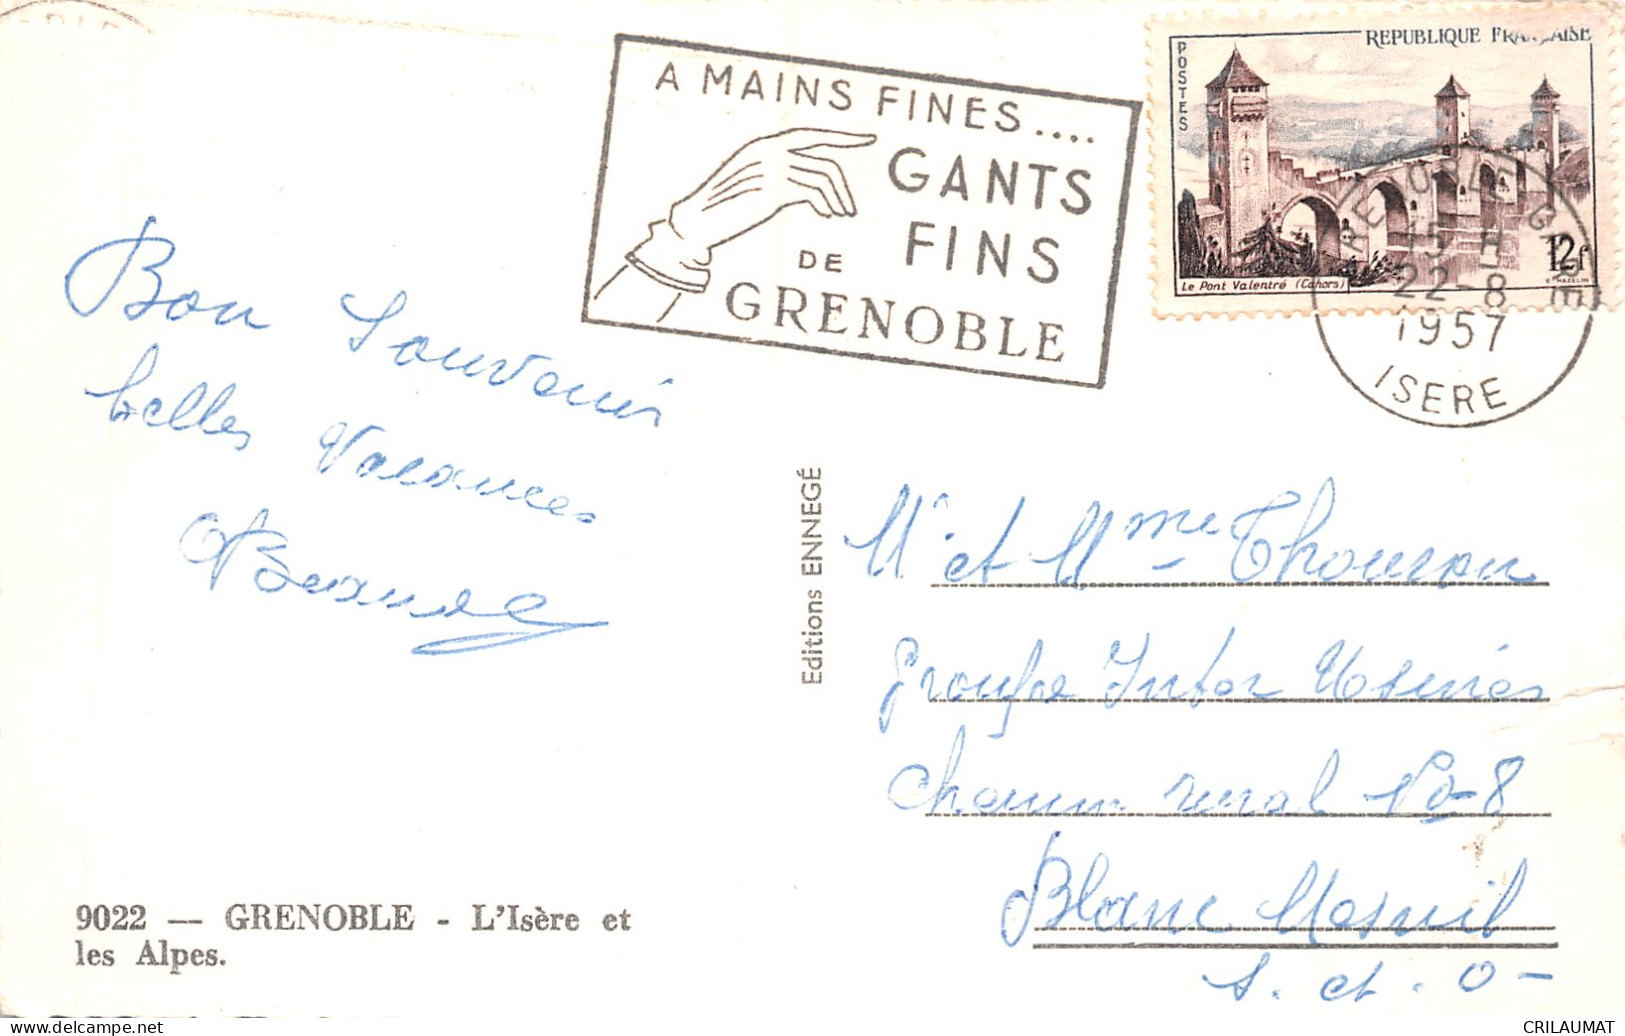 A MAINS FINES....
GANTS
FINS
DE
GRENOBLE
REPUBLIQUE FRANÇAISE
POSTES
12f
Le Pont Valentré (Cahors)
GRENOBLE GARE
15 H
22-8
1957
ISERE
Bon Souvenir
belles Vacances
Editions ENNEGÉ
Mr et Mme Thouron
Groupe Inter Usines
Chemin rural No 8
Blanc Mesnil
S. et. O-
9022 — GRENOBLE - L'Isère et
les Alpes.
CRILAUMAT